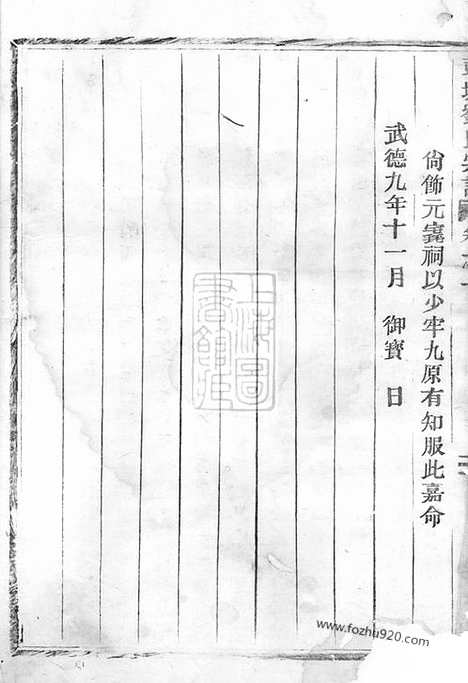 尙飾元寔祠以少牢九原有知服此嘉命
武德九年十一月　御寶　日
上海圖書館藏
www.fozhu920.com